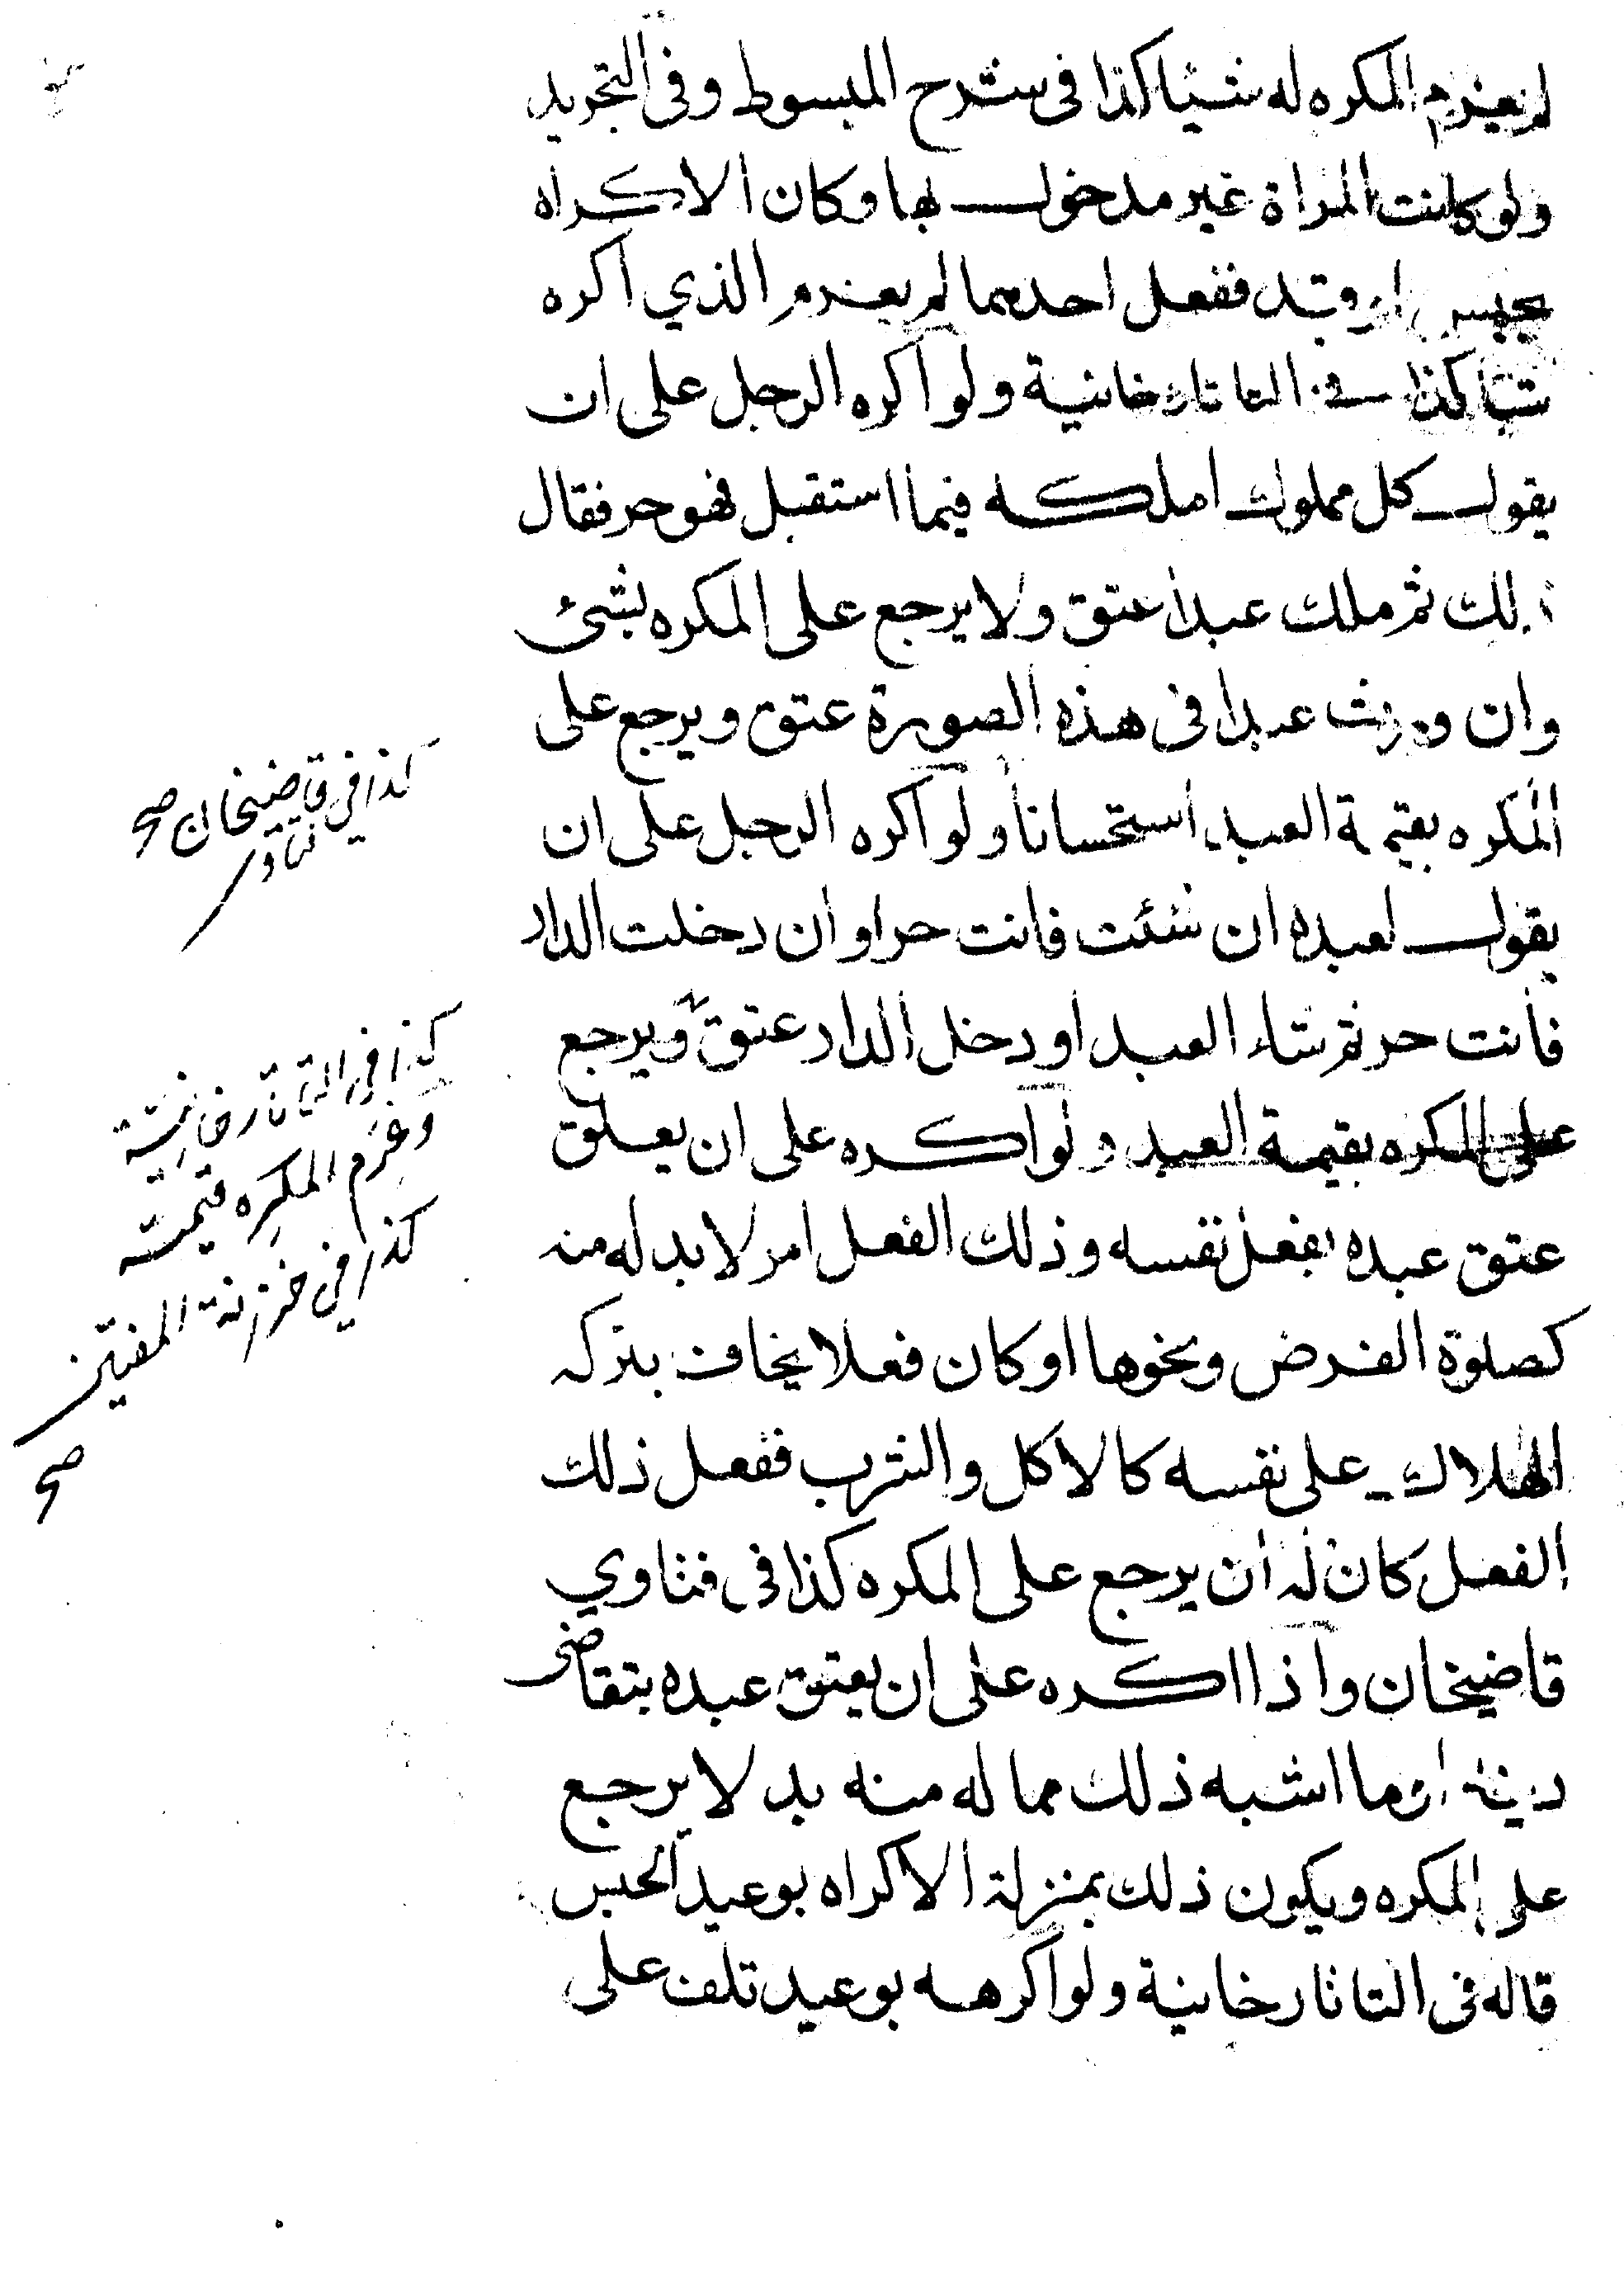 لم يغرم المكره له شيئا كذا فى شرح المبسوط وفى التجريد
ولو كانت المراة غير مدخول بها وكان الاكراه
بحبس او قيد ففعل احدهما لم يغرم الذي اكره
شيئا كذا فى التاتارخانية ولو اكره الرجل على ان
يقول كل مملوك املكه فيما استقبل فهو حر فقال
ذلك ثم ملك عبدا عتق ولا يرجع على المكره بشئ
وان ورث عبدا فى هذه الصورة عتق ويرجع على
المكره بقيمة العبد استحسانا ولو اكره الرجل على ان
يقول لعبده ان شئت فانت حر او ان دخلت الدار
فانت حر ثم شاء العبد او دخل الدار عتق ويرجع
على المكره بقيمة العبد ولو اكره على ان يعلق
عتق عبده بفعل نفسه وذلك الفعل امر لا بد له منه
كصلوة الفرض ونحوها او كان فعلا يخاف بتركه
الهلاك على نفسه كالاكل والشرب ففعل ذلك
الفعل كان له ان يرجع على المكره كذا فى فتاوي
قاضيخان واذا اكره على ان يعتق عبده بتقاضى
دينه او ما اشبه ذلك مما له منه بد لا يرجع
على المكره ويكون ذلك بمنزلة الاكراه بوعيد الحبس
قاله فى التاتارخانية ولو اكرهه بوعيد تلف على
كذا في قاضيخان صح
فتاوى
كذا في التاتارخانية
وغرم المكره قيمته
كذا في خزانة المفتين
صح